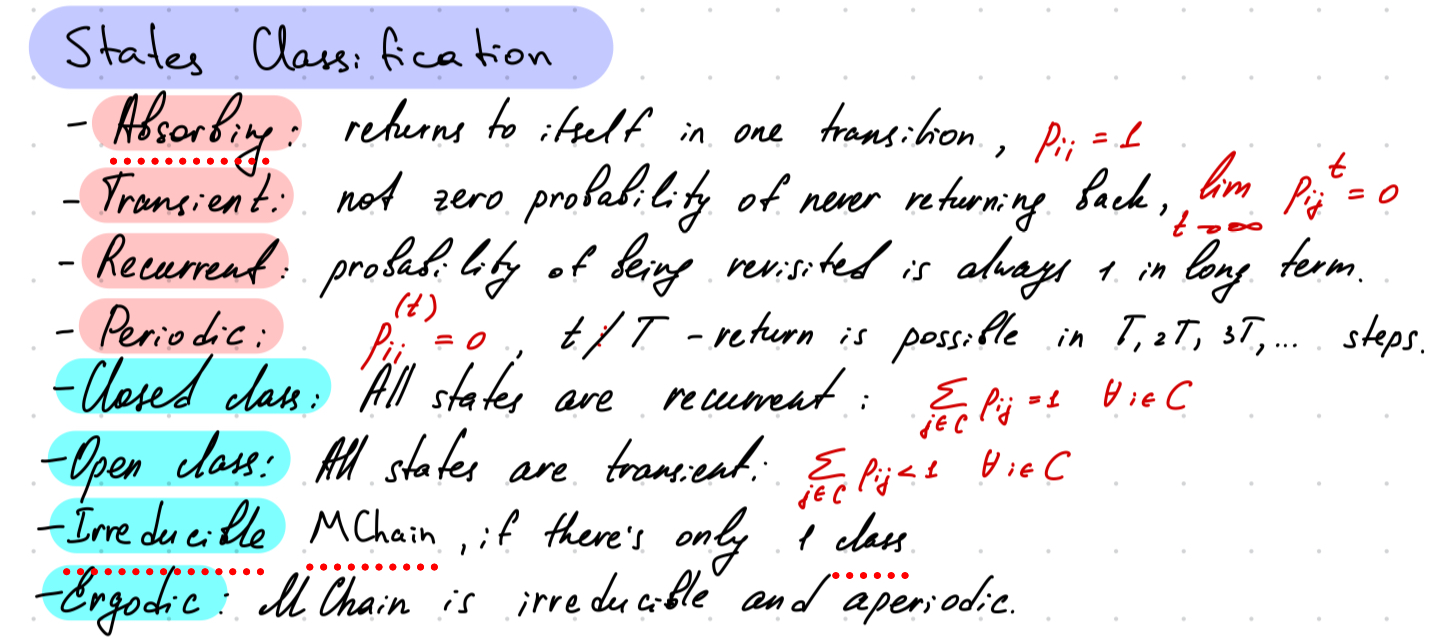 States Classification
- Absorbing: returns to itself in one transition, Pii = 1
- Transient: not zero probability of never returning back, lim t→∞ Pij^t = 0
- Recurrent: probability of being revisited is always 1 in long term.
- Periodic: Pii^(t) = 0, t⋮̸T - return is possible in T, 2T, 3T,... steps.
- Closed class: All states are recurrent: Σ j∈C Pij = 1 ∀i∈C
- Open class: All states are transient: Σ j∈C Pij < 1 ∀i∈C
- Irreducible MChain, if there's only 1 class
- Ergodic: MChain is irreducible and aperiodic.